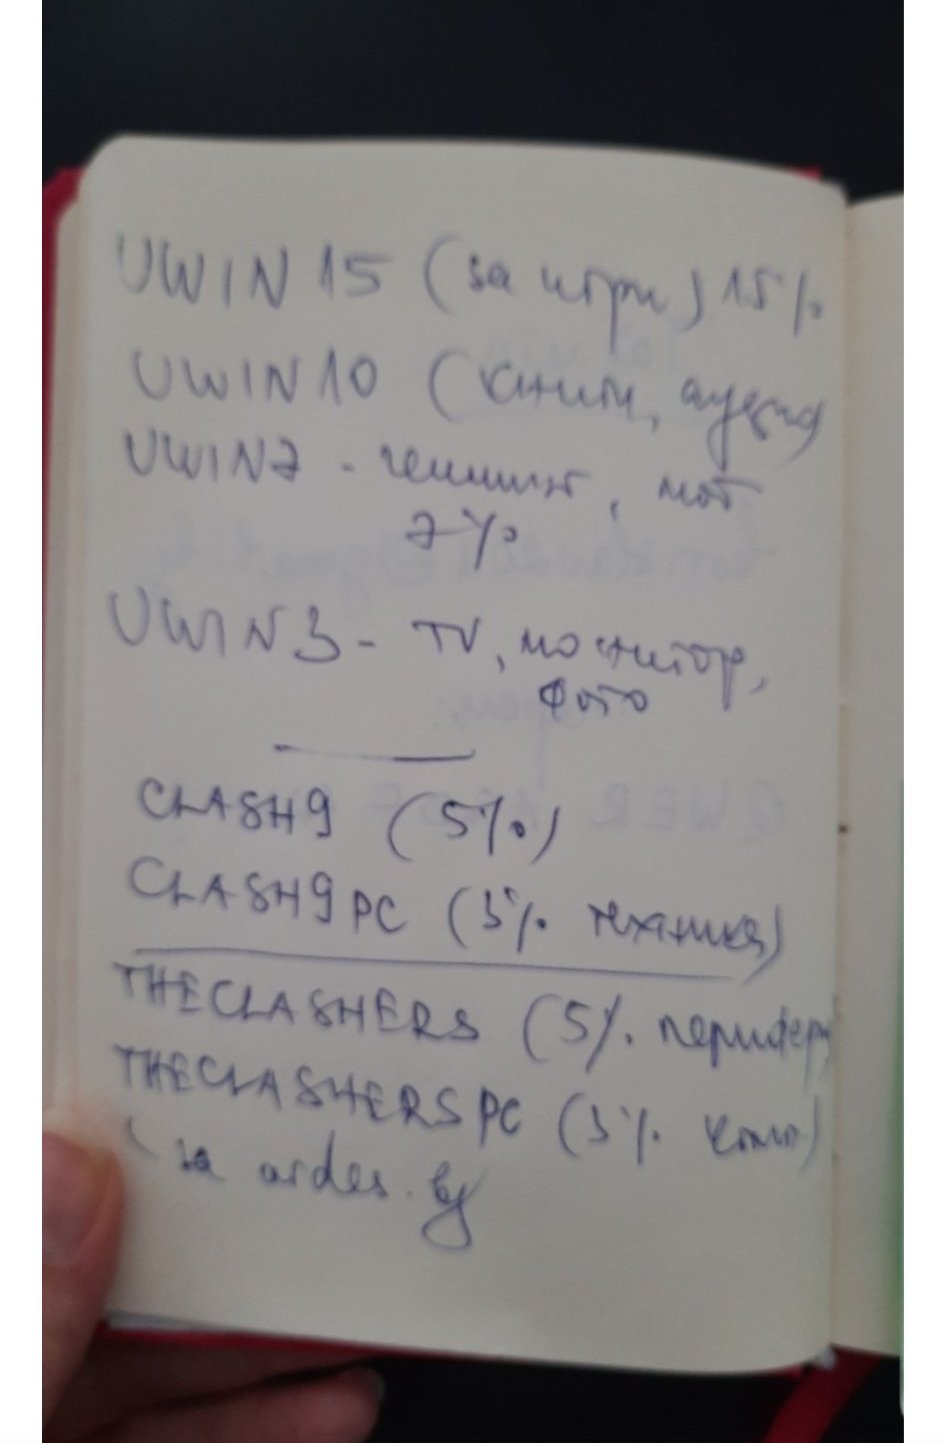 UWIN 15 (за игри) 15%
UWIN 10 (книги, аудио)
UWIN7 - гейминг, моб
7%
UWIN3 - TV, монитор,
фото
CLASH9 (5%)
CLASH9PC (3% техника)
THECLASHERS (5%. перифер
THECLASHERSPC (3%. комп)
за ardes.bg